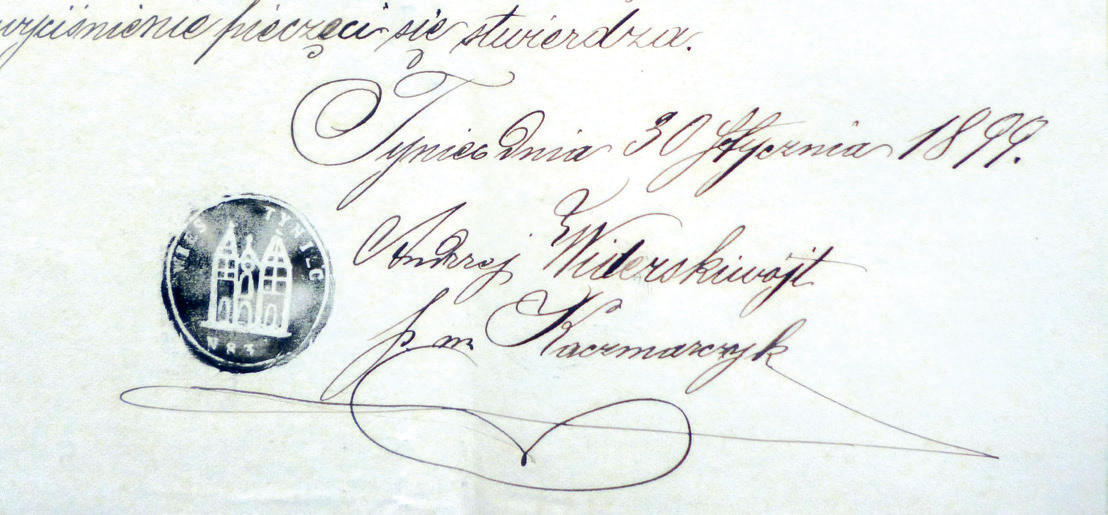 wyciśnienie pieczęci się stwierdza.
Tyniec dnia 30 Stycznia 1899.
WIEŚ TYNIEC
Andrzej Widerski wójt
p. m. Kaczmarczyk